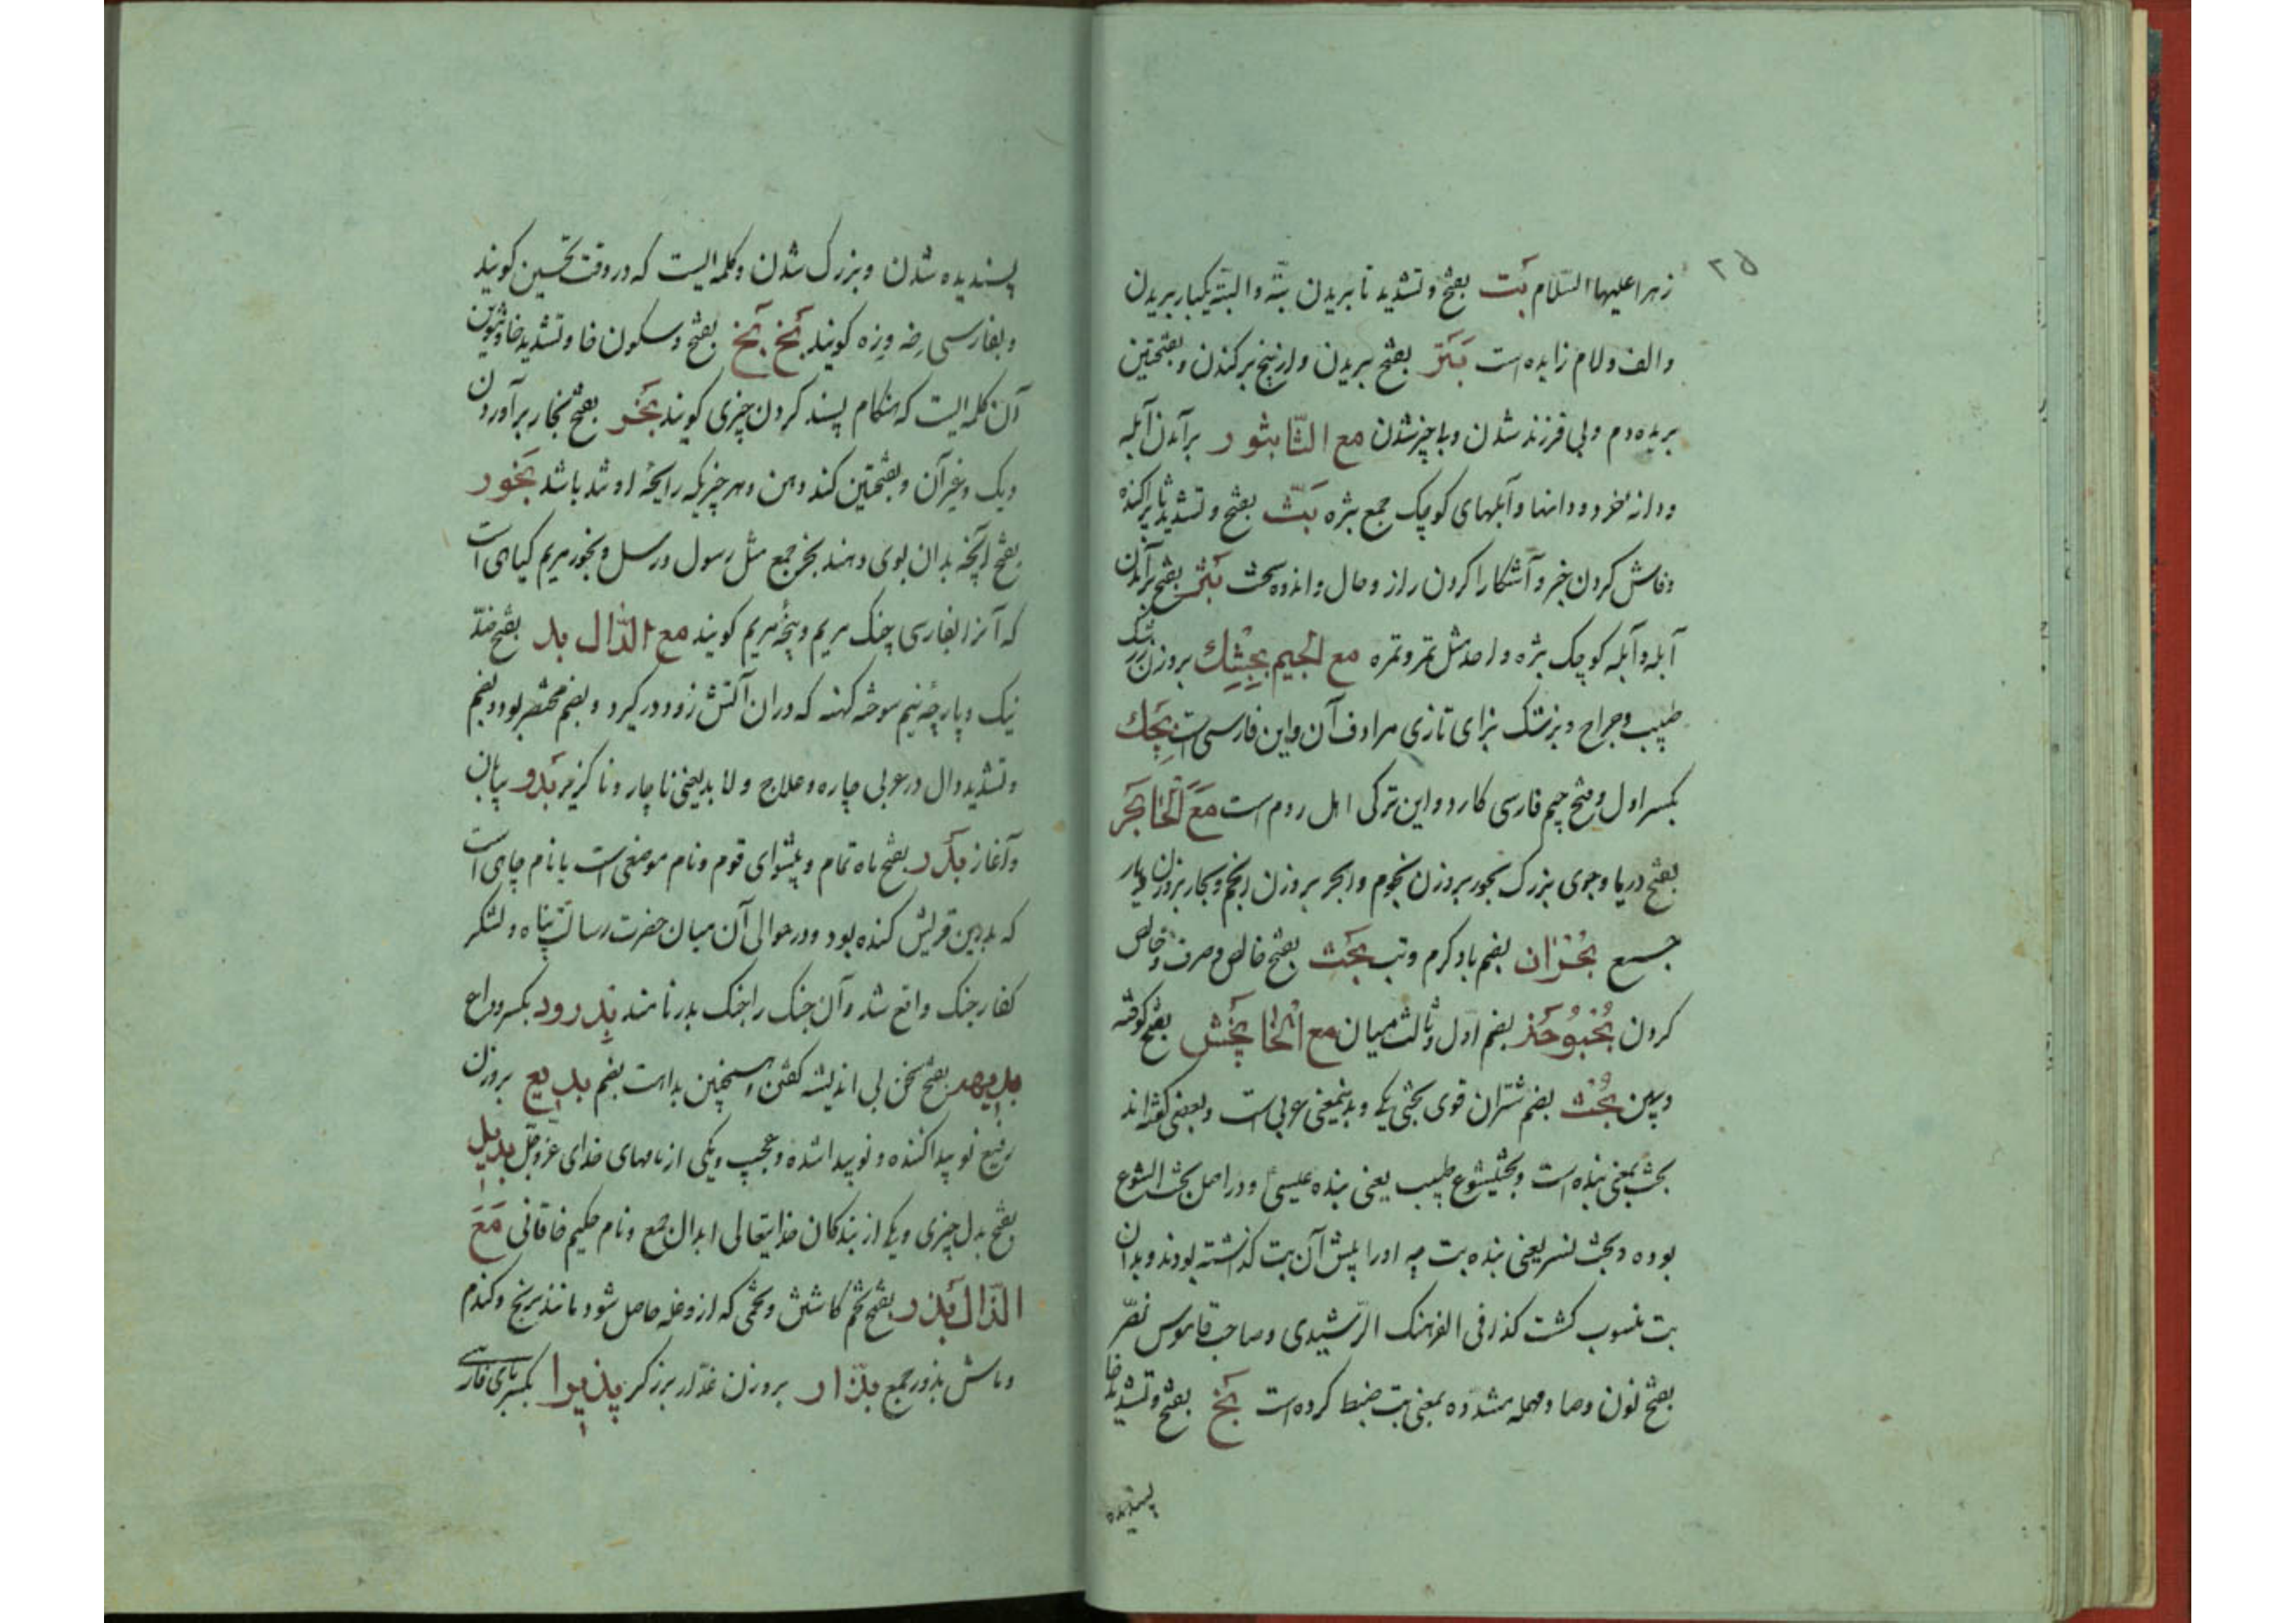 ۲۵
زهرا علیها السّلام بَت بفتح و تشدید تا بریدن بتّه و البتّه یکبار بریدن
و الف و لام زایده است بَتَر بفتح بریدن و از بیخ برکندن و بفتحتین
بریده دم و بی فرزند شدن و ناچیز شدن مع الثّا بثور برآمدن آبله
و دانه خرد و دانها و آبلهای کوچک جمع بثره بَثّ بفتح و تشدید ثا پراکنده
و فاش کردن خبر و آشکارا کردن راز و حال و اندوه سخت بَثر بفتح برآمدن
آبله و آبله کوچک بثره واحد مثل تمر و تمره مع الجیم بِجِشك بروزن زرشک
طبیب و جراح و بزشک بزای تازی مرادف آن و این فارسی است بِجَك
بکسر اول و فتح جیم فارسی کارد و این ترکی اهل روم است مَعَ الْحَا بَحر
بفتح دریا و جوی بزرگ بحور بروزن نجوم و ابحر بروزن انجم و بحار بروزن دیار
جمع بُحْران بضم باد گرم و تب بَحْت بفتح خالص و صرف و خالص
کردن بُحْبُوحَة بضم اول و ثالث میان مع الْخَا بَخْش بفتح کوفته
و بین بُخْت بضم شتران قوی بختی یکی و بدینمعنی عربی است و بعضی گفته‌اند
بخت بمعنی بنده است و بختیشوع طبیب یعنی بنده عیسیٰ و در اصل بخت الیشوع
بوده و بخت نسر یعنی بنده بت چه او را پیش آن بت گذاشته بودند و بدان
بت منسوب گشت کذا فی الفرهنک الرّشیدی و صاحب قاموس نصّر
بفتح نون و صاد مهمله مشدده بمعنی بت ضبط کرده است بَخ بفتح و تشدید خا
پسندیده
پسندیده شدن و بزرک شدن و کلمه ایست که در وقت تحسین کویند
و بفارسی زه وزه کویند بَخ بَخ بفتح و سکون خا و تشدید خا و تنوین
آن کلمه ایست که هنکام پسند کردن چیزی کویند بَخَر بفتح بخار برآوردن
دیک و غیر آن و بفتحتین کند دهن و هر چیزیکه رایحه او شد باشد بَخور
بفتح آنچه بدان بوی دهند بخر جمع مثل رسول و رسل و بخور مریم کیاهی است
که آنرا بفارسی چنک مریم و پنجهٔ مریم کویند مع الدّال بد بفتح ضدّ
نیک و پارچهٔ نیم سوخته کهنه که در آن آتش زود در کیرد و بضم مختصر بود و بضم
و تشدید دال در عربی چاره و علاج و لا بد یعنی ناچار و ناکزیر بَدو بیابان
و آغاز بَدْر بفتح ماه تمام و پیشوای قوم و نام موضعی است یا نام چاهی است
که بدر بن قریش کنده بود و در حوالی آن میان حضرت رسالت پناه و لشکر
کفار جنک واقع شد و آن جنک را جنک بدر نامند بِدرود بکسر وداع
بدیهه بفتح سخن بی اندیشه کفتن و همچنین بداهت بضم بدیع بروزن
رفیع نو پیدا کننده و نو پیدا شده و عجیب و یکی از نامهای خدای عزوجلّ بدیل
بفتح بدل چیزی و یکی از بندکان خدایتعالی ابدال جمع و نام حکیم خاقانی مَعَ
الذّال بَذر بفتح تخم کاشتن و تخمی که ازو غله حاصل شود مانند برنج و کندم
و ماش بذور جمع بذّار بروزن غدّار برزکر پذیرا بکسر بای فارسی